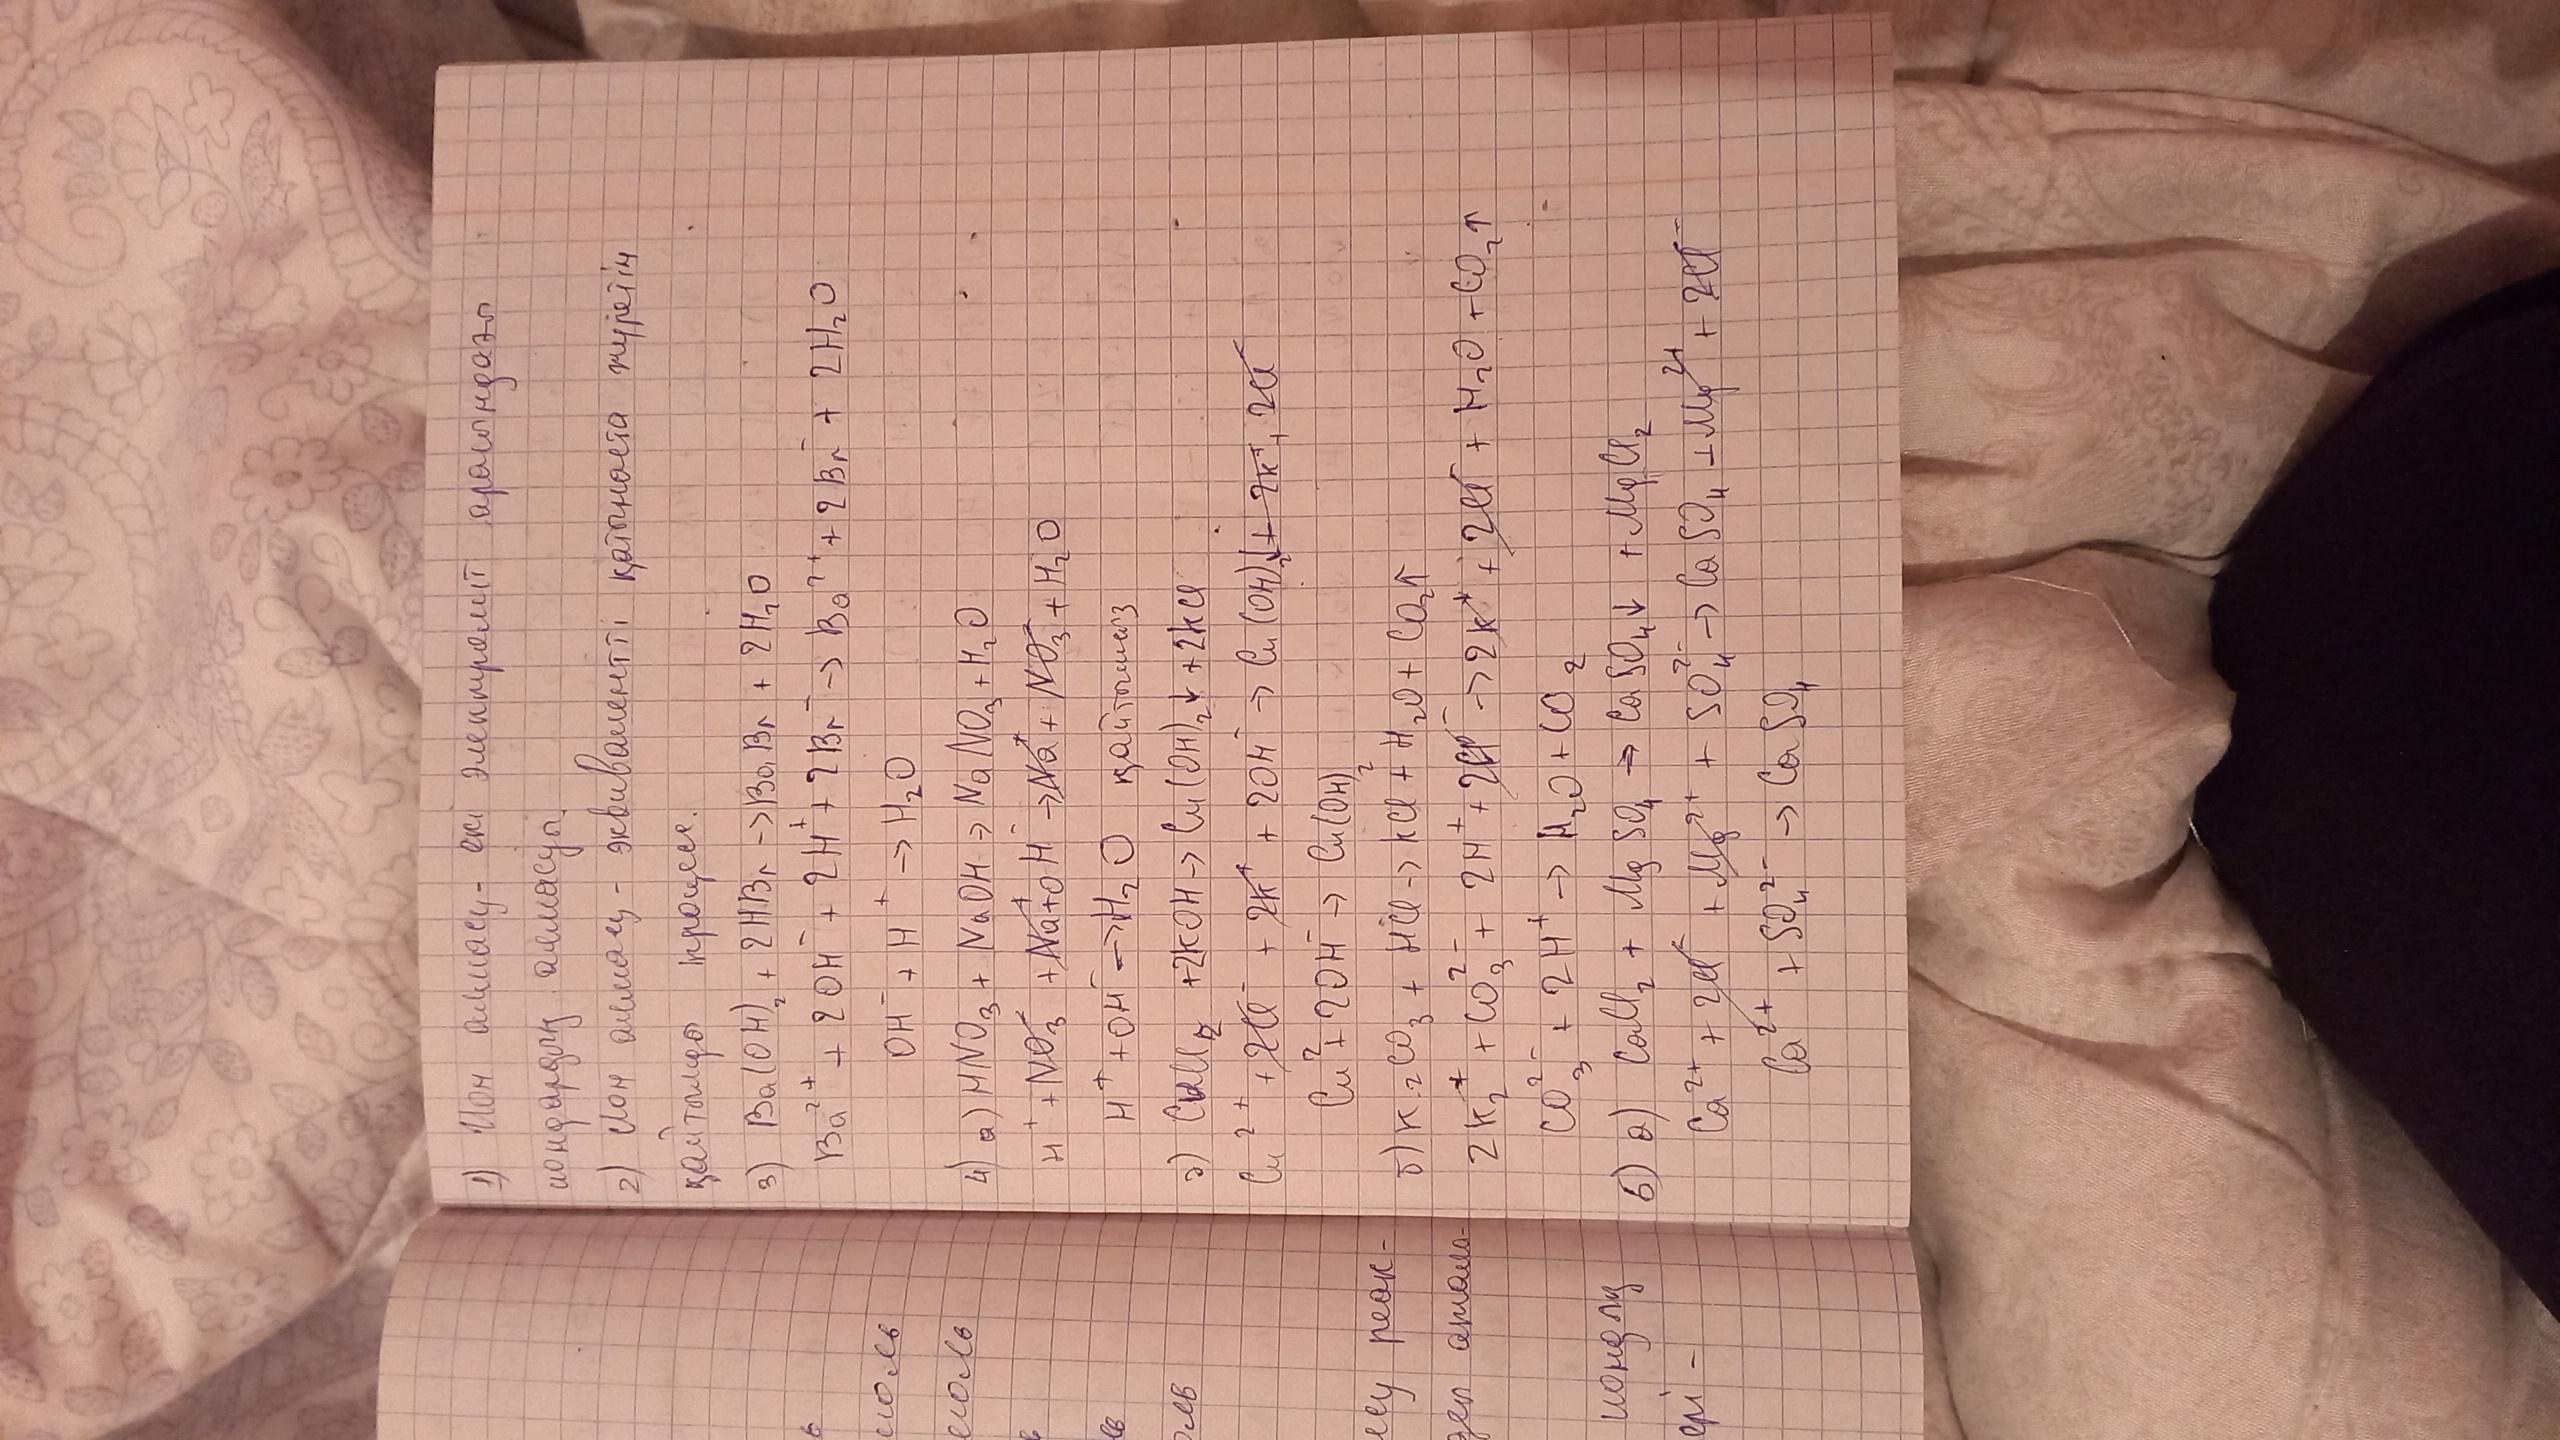 1) Ион алмасу - екі электролит арасындағы
иондардың алмасуы.
2) Ион алмасу - эквивалентті қатынаста жүретін
қайтымды процесс.
3) Ba(OH)₂ + 2HBr → BaBr + 2H₂O
Ba²⁺ + 2OH⁻ + 2H⁺ + 2Br⁻ → Ba²⁺ + 2Br⁻ + 2H₂O
OH⁻ + H⁺ → H₂O
4) а) HNO₃ + NaOH → NaNO₃ + H₂O
H⁺ + NO₃⁻ + Na⁺ + OH⁻ → Na⁺ + NO₃⁻ + H₂O
H⁺ + OH⁻ → H₂O қайтымсыз
ә) CuCl₂ + 2KOH → Cu(OH)₂↓ + 2KCl
Cu²⁺ + 2Cl⁻ + 2K⁺ + 2OH⁻ → Cu(OH)₂↓ + 2K⁺ + 2Cl⁻
Cu²⁺ + 2OH⁻ → Cu(OH)₂
б) K₂CO₃ + HCl → KCl + H₂O + CO₂↑
2K₂⁺ + CO₃²⁻ + 2H⁺ + 2Cl⁻ → 2K⁺ + 2Cl⁻ + H₂O + CO₂↑
CO₃²⁻ + 2H⁺ → H₂O + CO₂
6) а) CaCl₂ + MgSO₄ → CaSO₄↓ + MgCl₂
Ca²⁺ + 2Cl⁻ + Mg²⁺ + SO₄²⁻ → CaSO₄ + Mg²⁺ + 2Cl⁻
Ca²⁺ + SO₄²⁻ → CaSO₄